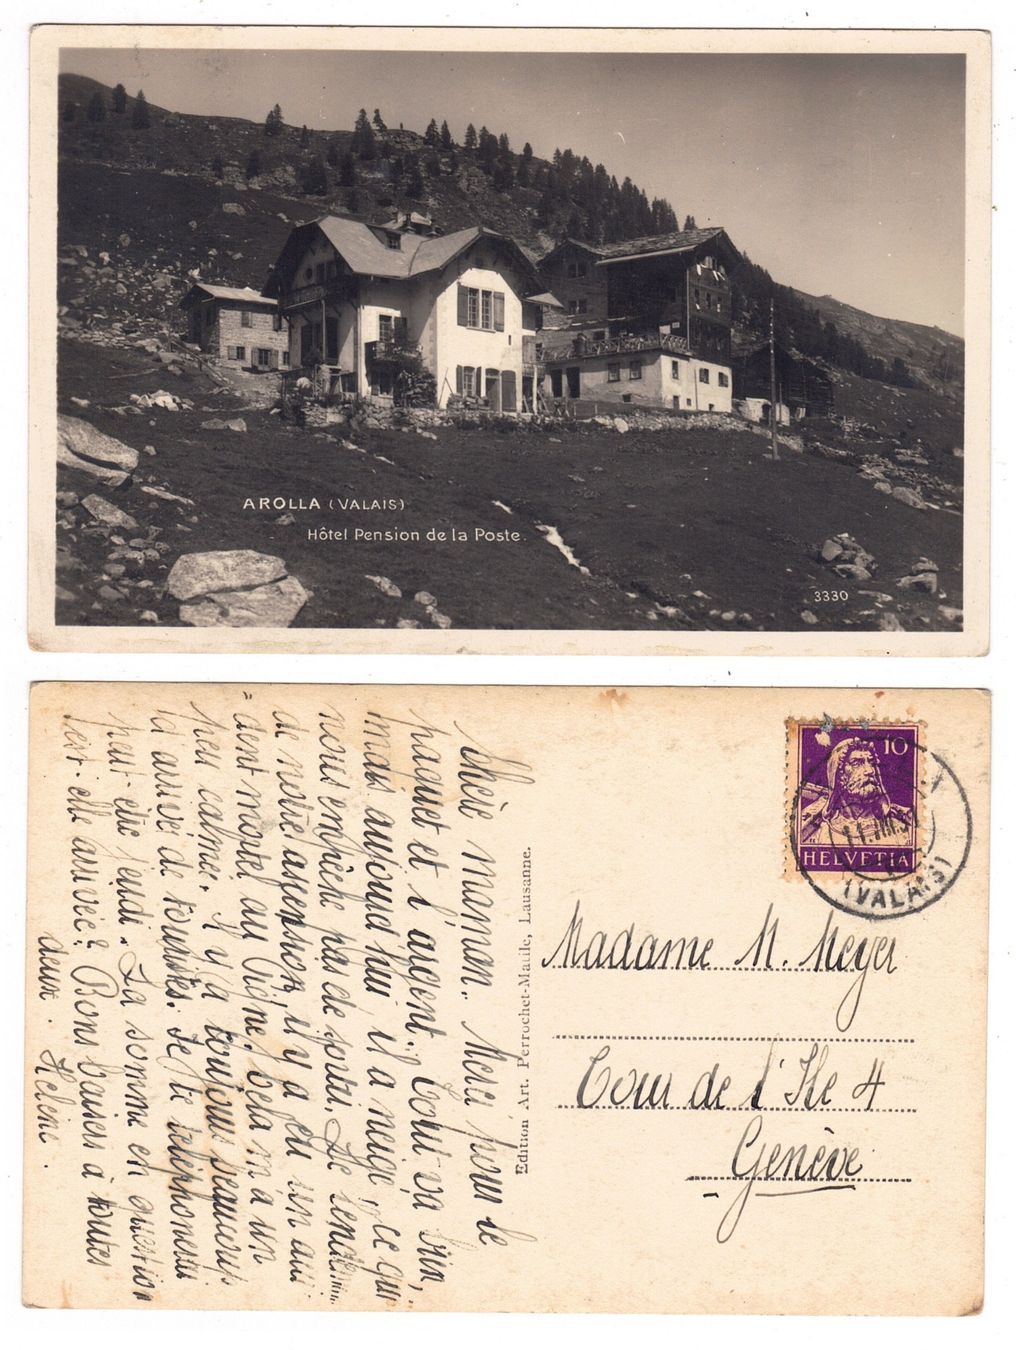 AROLLA (VALAIS)
Hôtel Pension de la Poste.
3330
Chère maman. Merci pour le
paquet et l'argent. Tout va bien,
mais aujoud'hui, il a neigé, ce qui
nous empêche pas de sortir. Le
de notre ascension, il y a eu un acci
=dent mortel au Pigne. Cela m'a un
peu calmé. Il y a toujours beaucoup
d'arrivé de touristes. Je te telephonerai
peut-être jeudi. La somme en question
est-elle arrivée? Bons baisers à toutes
deux. Helène.
Edition Art. Perrochet-Matile, Lausanne.
10
HELVETIA
11.VIII.3
(VALAIS)
Madame M. Meyer
Tour de l'Ile 4
Genève